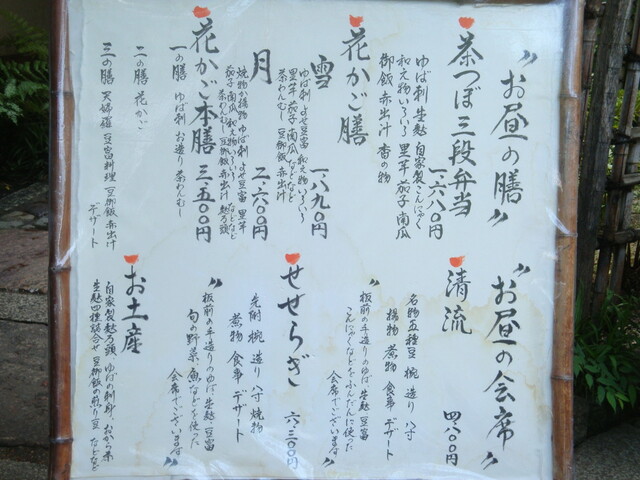 〝お昼の膳〟
茶つぼ三段弁当
一、六八〇円
ゆば刺 生麩 自家製こんにゃく
和え物いろいろ 里芋 茄子 南瓜
御飯 赤出汁 香の物
花かご膳
雪 一、八九〇円
ゆば刺 よせ豆富 和え物いろいろ
里芋 茄子 南瓜 などなど
茶わんむし 豆御飯 赤出汁
月 二、六〇〇円
焼物か揚物 ゆば刺 よせ豆富 里芋
茄子 南瓜 和え物いろいろ などなど
茶わんむし 豆御飯 赤出汁 麩万頭
花かご本膳 三、五〇〇円
一の膳 ゆば刺 お造り 茶わんむし
二の膳 花かご
三の膳 天婦羅 豆富料理 豆御飯 赤出汁
デザート
〝お昼の会席〟
清流 四、八〇〇円
名物五種豆 椀 造り 八寸
揚物 煮物 食事 デザート
〝板前の手造りのゆば 生麩 豆富
こんにゃくなどをふんだんに使った
会席でございます〟
せせらぎ 六、三〇〇円
先附 椀 造り 八寸 焼物
煮物 食事 デザート
〝板前の手造りのゆば 生麩 豆富
旬の野菜 魚などを使った
会席でございます〟
お土産
自家製麩万頭 ゆばの刺身 おから茶
生麩四種詰合せ 豆御飯の煎り豆 などなど